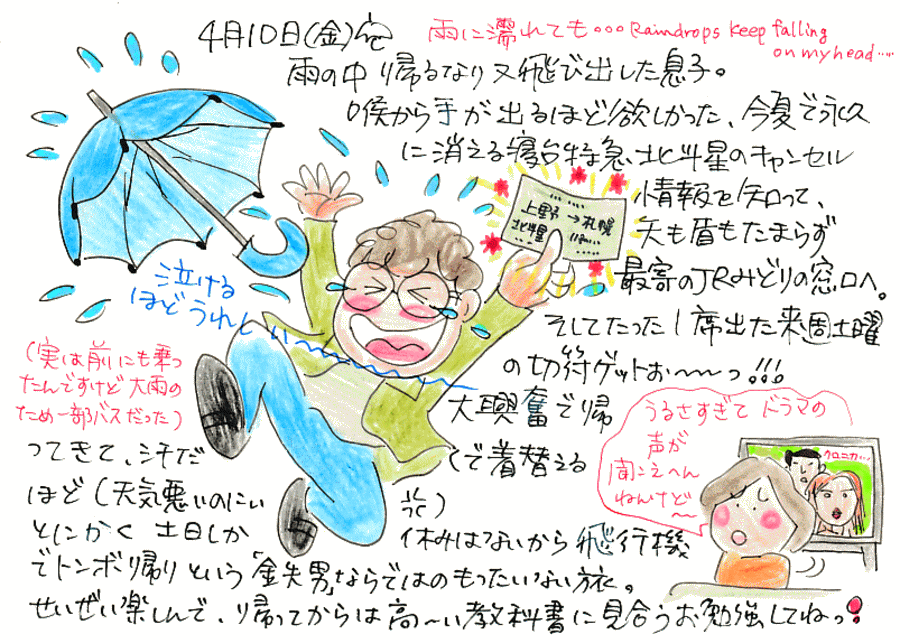 4月10日(金)
雨に濡れても...Raindrops keep falling
on my head.....
雨の中 帰るなり又飛び出した息子。
喉から手が出るほど欲しかった、今夏で永久
に消える寝台特急、北斗星のキャンセル
情報を知って、
矢も盾もたまらず
最寄のJRみどりの窓口へ。
そしてたった1席出た来週土曜
の切符ゲットぉ〜〜っ!!!
上野→札幌
北斗星
泣ける
ほどうれしい〜
(実は前にも乗っ
たんですけど大雨の
ため一部バスだった)
大興奮で帰
ってきて、汗だ
くで着替える
ほど(天気悪いのに
)
とにかく 土日しか
休みはないから 飛行機
でトンボ帰りという「金失男」ならではのもったいない旅。
せいぜい楽しんで、帰ってからは高〜い教科書に見合うお勉強してねっ!
うるさすぎて ドラマの
声が
聞こえへん
ねんけど〜
クロニカ...